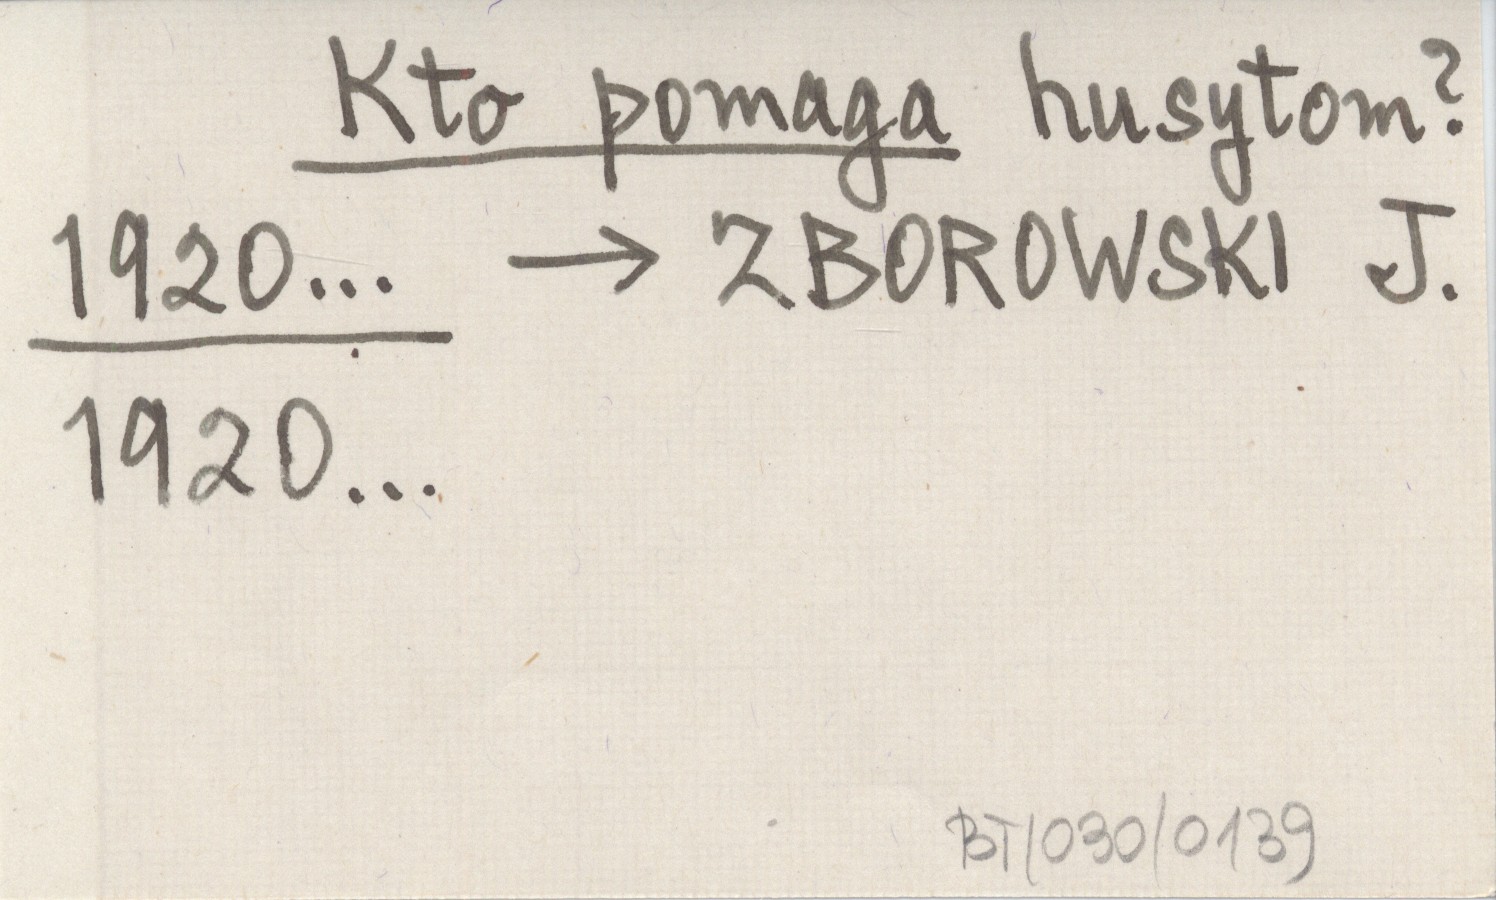 Kto pomaga husytom?
1920... → ZBOROWSKI J.
1920...
BT/030/0139